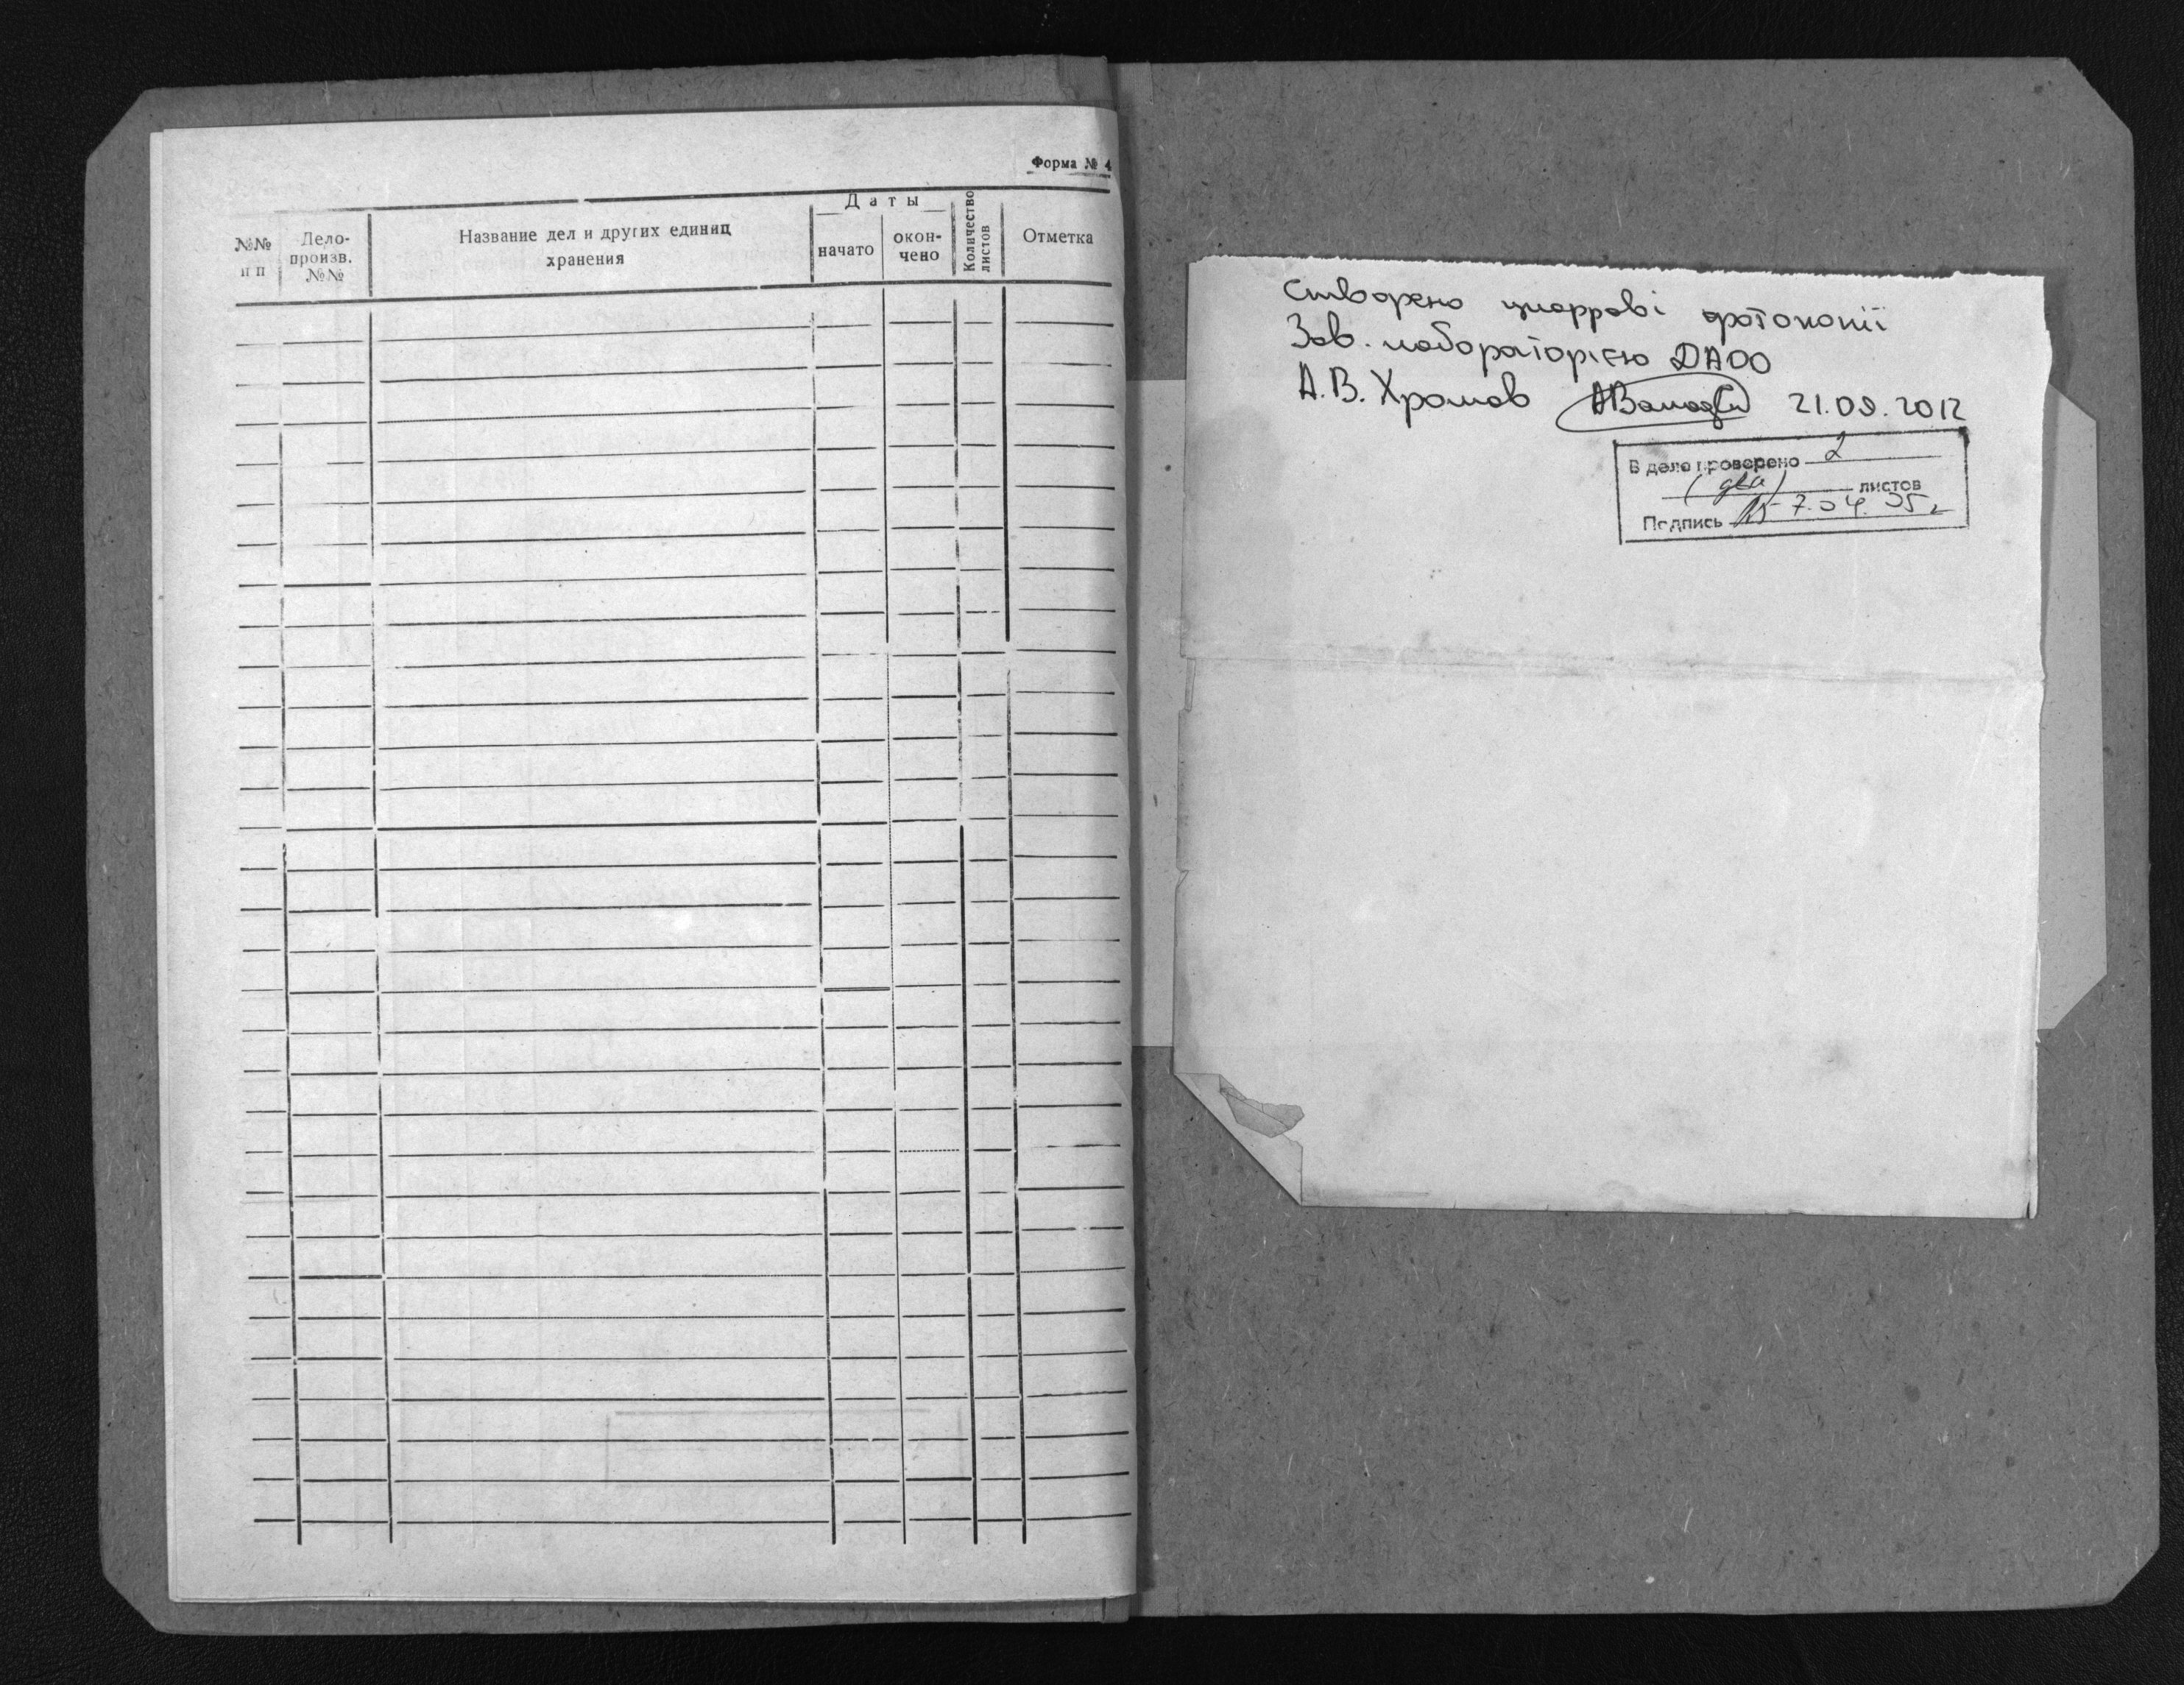 Форма № 4
№№ п п
Дело-
произв.
№№
Название дел и других единиц
хранения
Даты
начато
окон-
чено
Количество
листов
Отметка
Створено цифрові фотокопії
Зав. лабораторією ДАОО
А.В. Хромов 21.09.2012
В деле проверено 2
(два) листов
Подпись 7.04.05г